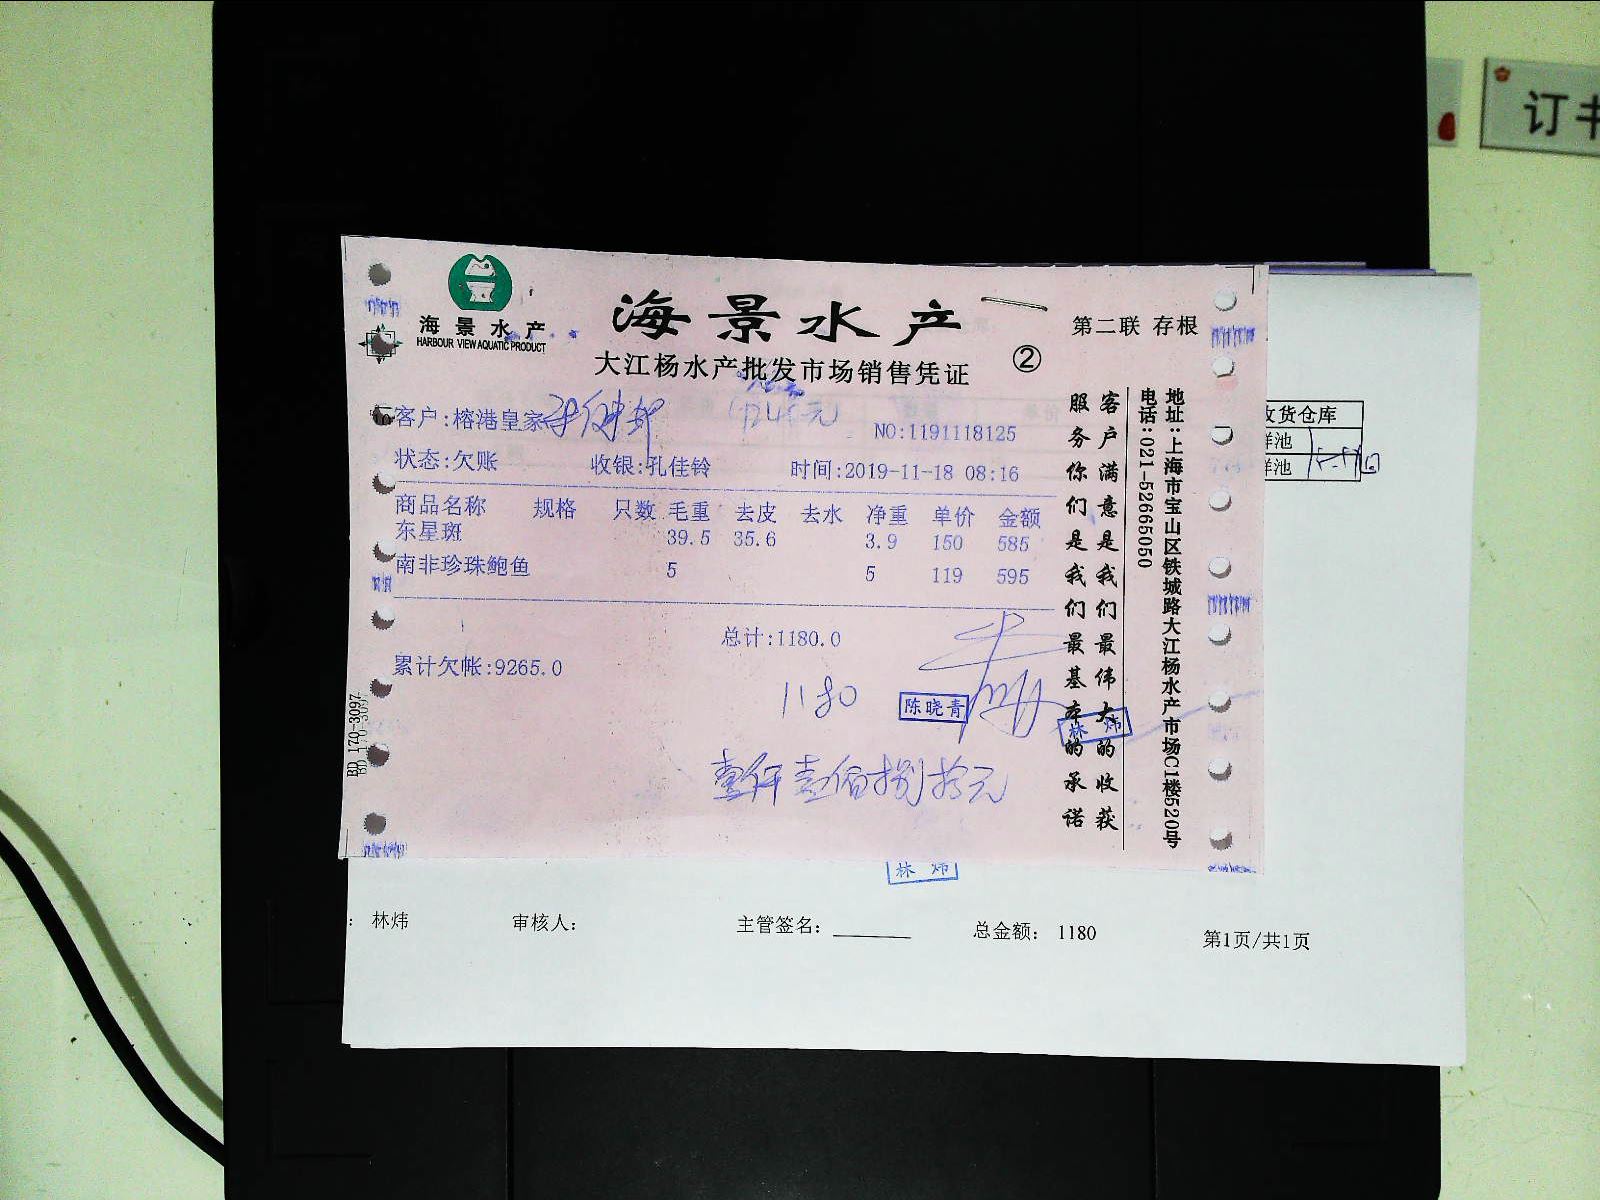 订书
海景水产
HARBOUR VIEW AQUATIC PRODUCT
海景水产
第二联 存根
大江杨水产批发市场销售凭证
②
客户:榕港皇家
NO:1191118125
状态:欠账 收银:孔佳铃 时间:2019-11-18 08:16
商品名称 规格 只数 毛重 去皮 去水 净重 单价 金额
东星斑 39.5 35.6 3.9 150 585
南非珍珠鲍鱼 5 5 119 595
总计:1180.0
累计欠帐:9265.0
1180
陈晓青
林炜
壹仟壹佰捌拾元
客户满意是我们最伟大的收获
服务你们是我们最基本的承诺
地址:上海市宝山区铁城路大江杨水产市场C1楼520号
电话:021-52665050
BD 170-3097
收货仓库
鲜池
鲜池
林炜
: 林炜 审核人: 主管签名: 总金额: 1180 第1页/共1页